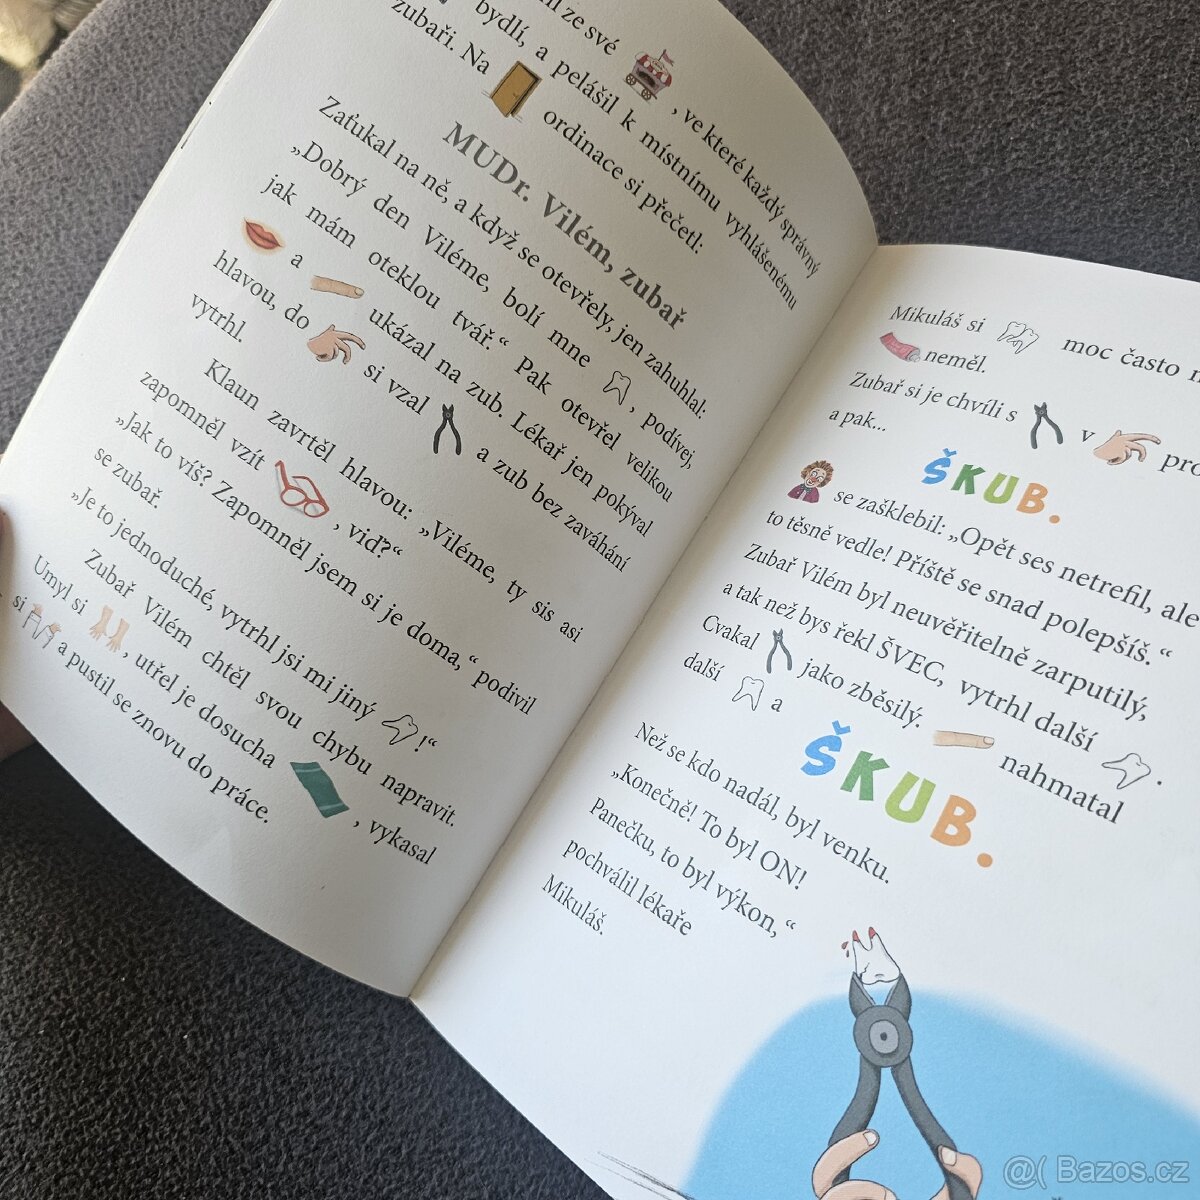 ze své , ve které každý správný
bydlí, a pelášil k místnímu vyhlášenému
zubaři. Na ordinace si přečetl:
MUDr. Vilém, zubař
Zaťukal na ně, a když se otevřely, jen zahuhlal:
„Dobrý den Viléme, bolí mne , podívej,
jak mám oteklou tvář.“ Pak otevřel velikou
a ukázal na zub. Lékař jen pokýval
hlavou, do si vzal a zub bez zaváhání
vytrhl.
Klaun zavrtěl hlavou: „Viléme, ty sis asi
zapomněl vzít , viď?“
„Jak to víš? Zapomněl jsem si je doma,“ podivil
se zubař.
„Je to jednoduché, vytrhl jsi mi jiný !“
Zubař Vilém chtěl svou chybu napravit.
Umyl si , utřel je dosucha , vykasal
si a pustil se znovu do práce.
Mikuláš si moc často
neměl.
Zubař si je chvíli s v
a pak...
ŠKUB.
se zašklebil: „Opět ses netrefil, ale
to těsně vedle! Příště se snad polepšíš.“
Zubař Vilém byl neuvěřitelně zarputilý,
a tak než bys řekl ŠVEC, vytrhl další .
Cvakal jako zběsilý. nahmatal
další a
ŠKUB.
Než se kdo nadál, byl venku.
„Konečně! To byl ON!
Panečku, to byl výkon,“
pochválil lékaře
Mikuláš.
@( Bazos.cz